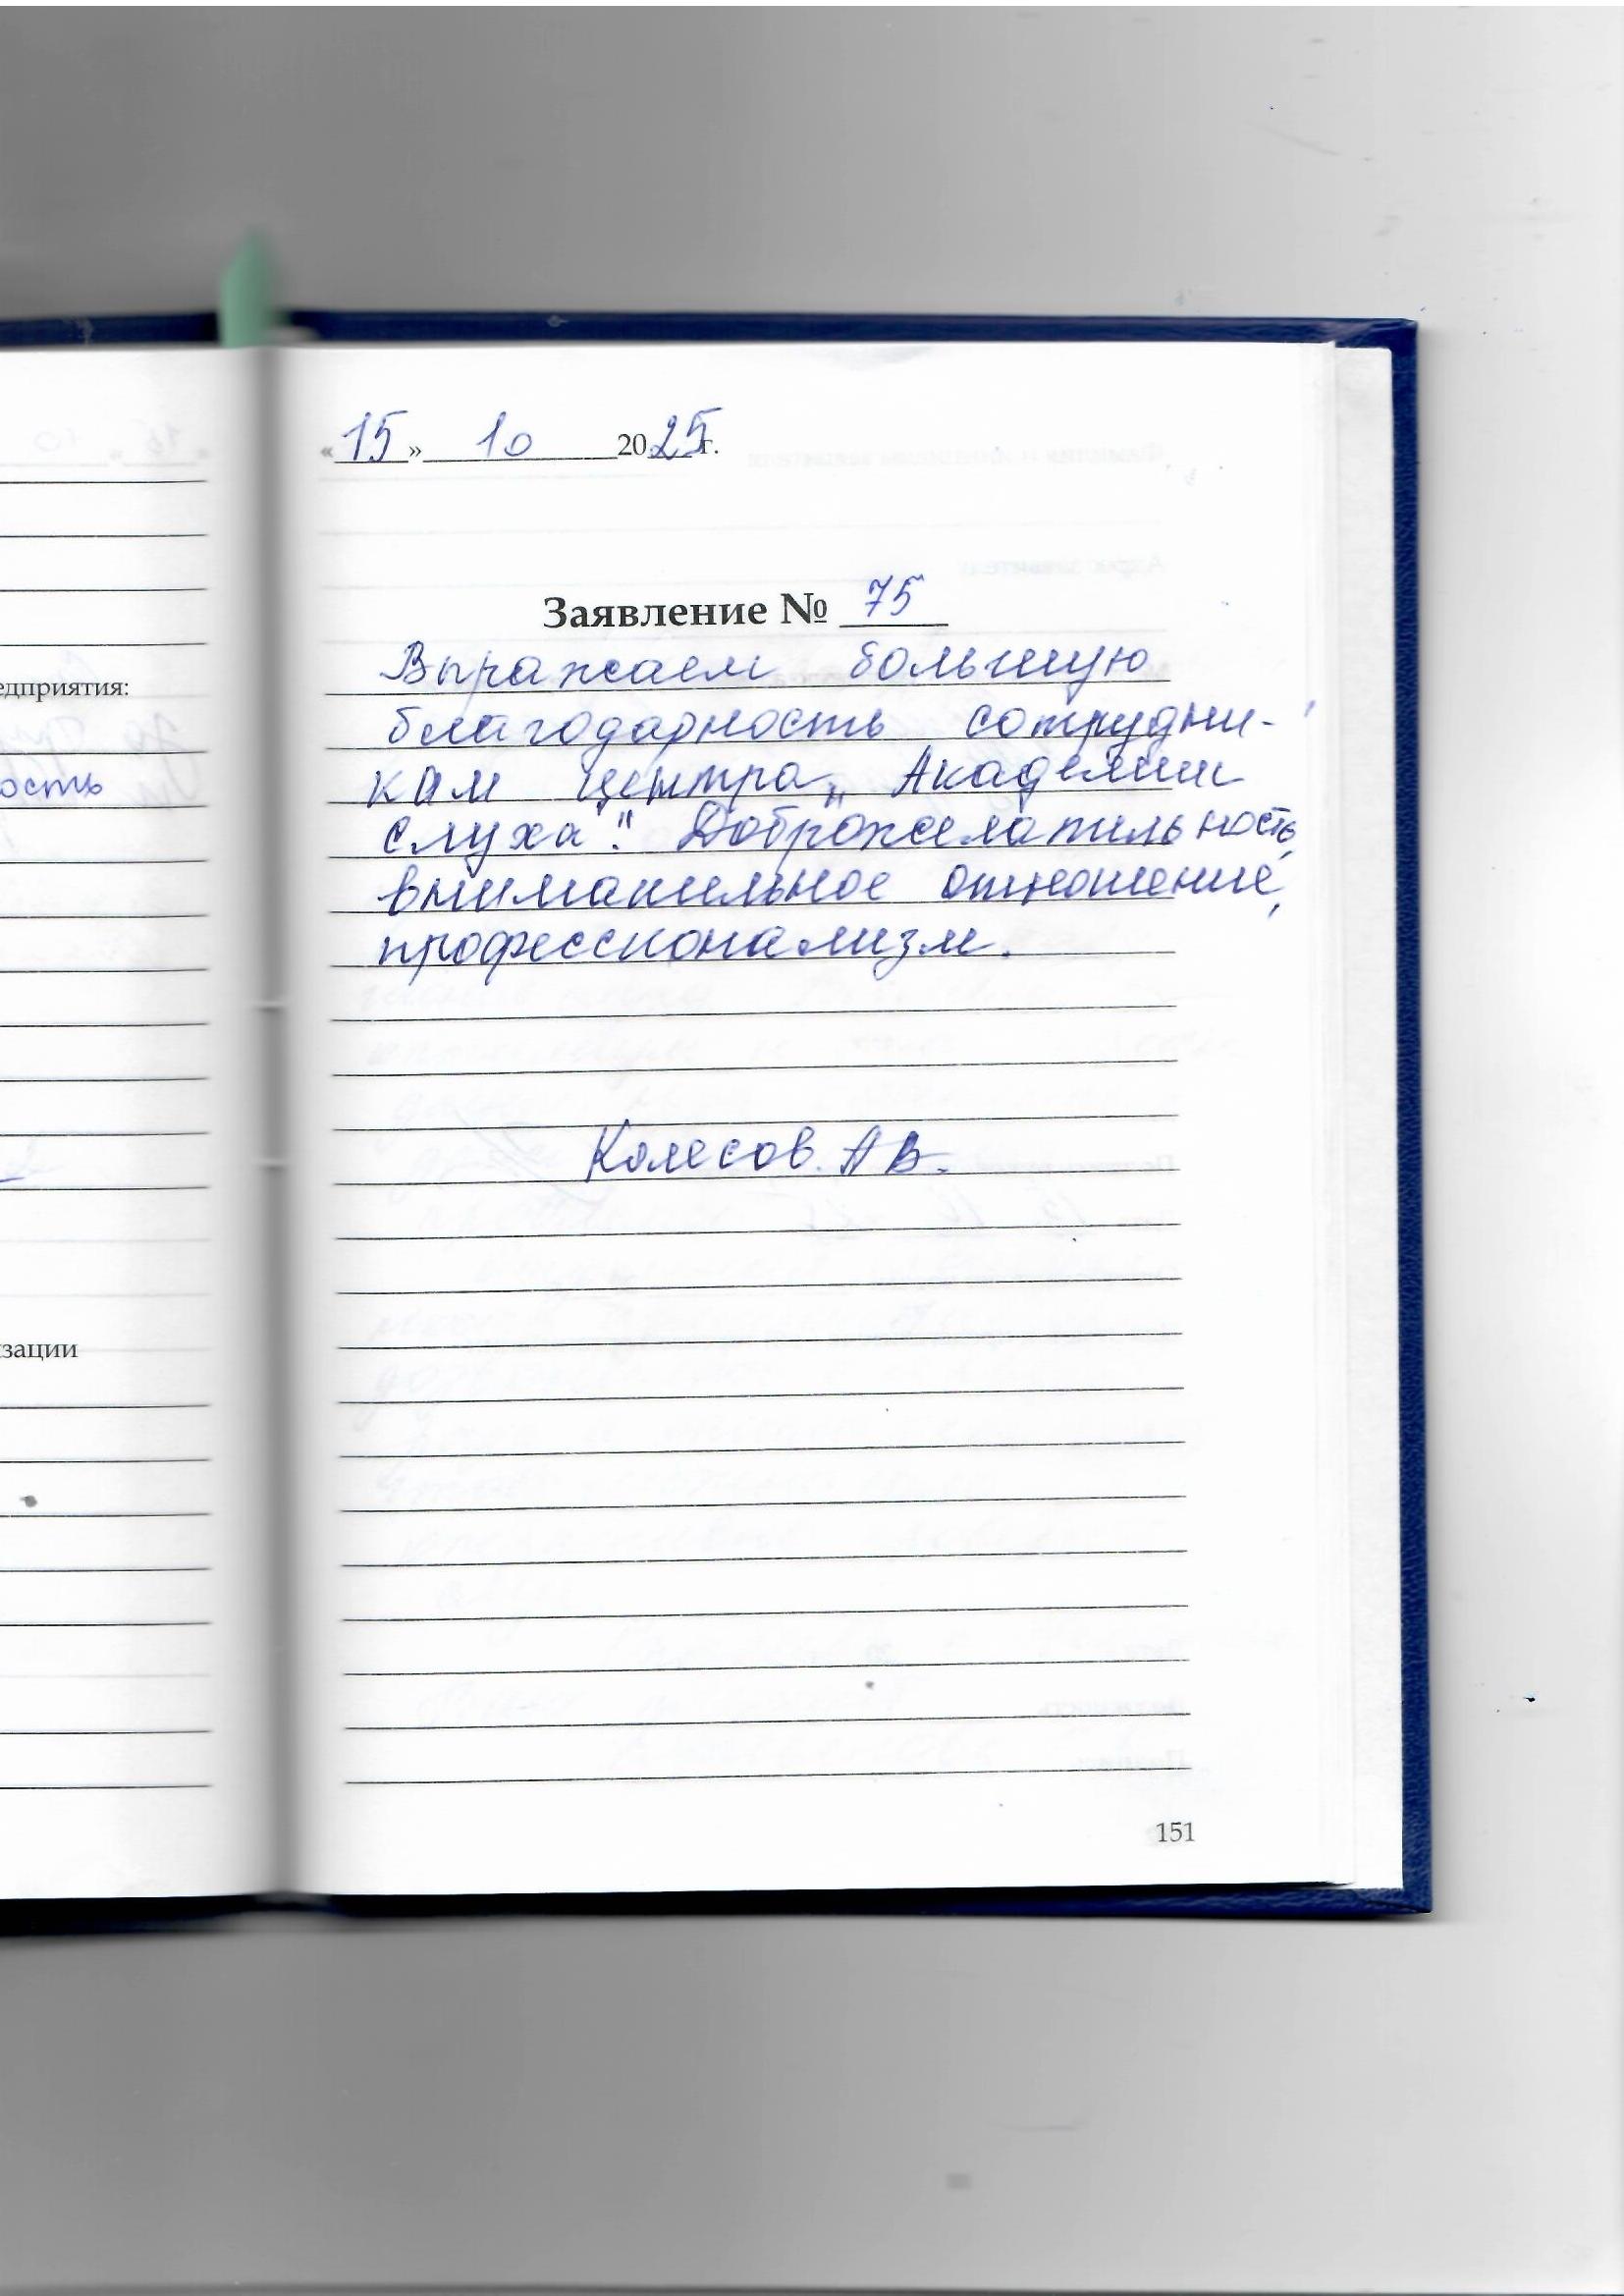 едприятия:
ость
зации
«15» 10 2025г.
Заявление № 75
Выражаем большую
благодарность сотрудни-
кам центра „Академии
слуха". Доброжелательность,
внимательное отношение,
профессионализм.
Колесов. А В.
151